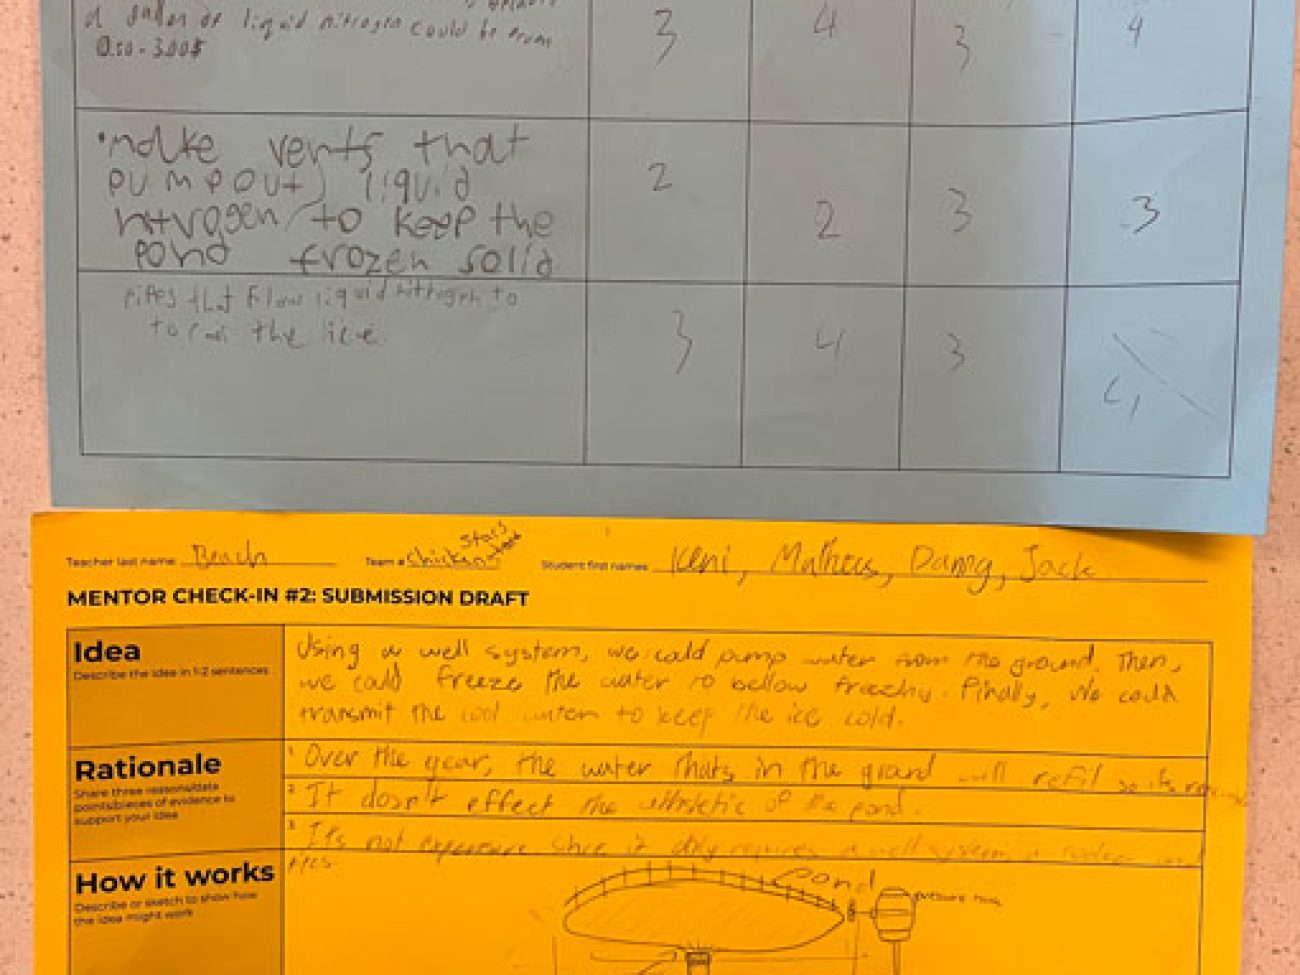 a gallon of liquid nitrogen could be from
0.50 - 3.00$
3 4 3 4
• make vents that
pump out liquid
nitrogen to keep the
pond frozen solid
2 2 3 3
pipes that flow liquid nitrogen to
the iice.
3 4 3 4
Teacher last name: Beach Team # Chicken Stars Student first names Keni, Matheus, Danny, Jack
MENTOR CHECK-IN #2: SUBMISSION DRAFT
Idea
Describe the idea in 1-2 sentences
Using a well system, we could pump water from the ground. Then,
we could freeze the water to bellow freezing. Finally, we could
transmit the cool water to keep the ice cold.
Rationale
Share three reasons/data
points/pieces of evidence to
support your idea
1 Over the year, the water thats in the ground will refil so its
2 It dosn't effect the of the pond.
3 It's not expensive since it only requires a well system, a and
pipes.
How it works
Describe or sketch to show how
the idea might work
pond
pressure tank